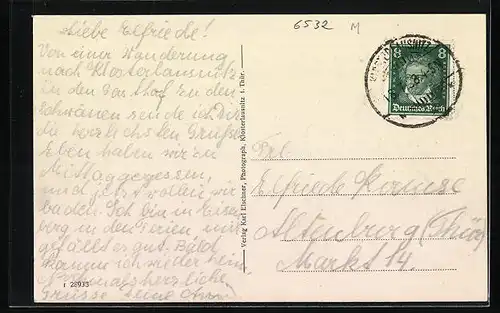 6532 M
Liebe Elfriede!
Von einer Wanderung
nach Klosterlausnitz
in den Gasthof zu den
Schwänen sende ich Dir
die herzlichsten Grüße.
Eben haben wir zu
Mittag gegessen,
und jetzt wollen wir
baden. Ich bin in Eisen
berg in den Ferien, mir
gefällt es gut. Bald
komme ich wieder heim
Nochmals herzliche
Grüsse Deine
r 28933
Verlag Karl Elschner, Photograph, Klosterlausnitz i. Thür.
8 8
Deutsches Reich
Frl.
Elfriede Krause
Altenburg (Thür)
Markt 14.